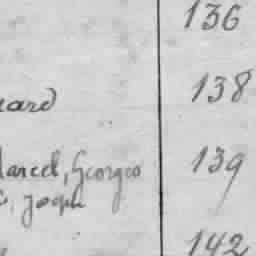 136
138
Marcel, Georges 139
Joseph
142